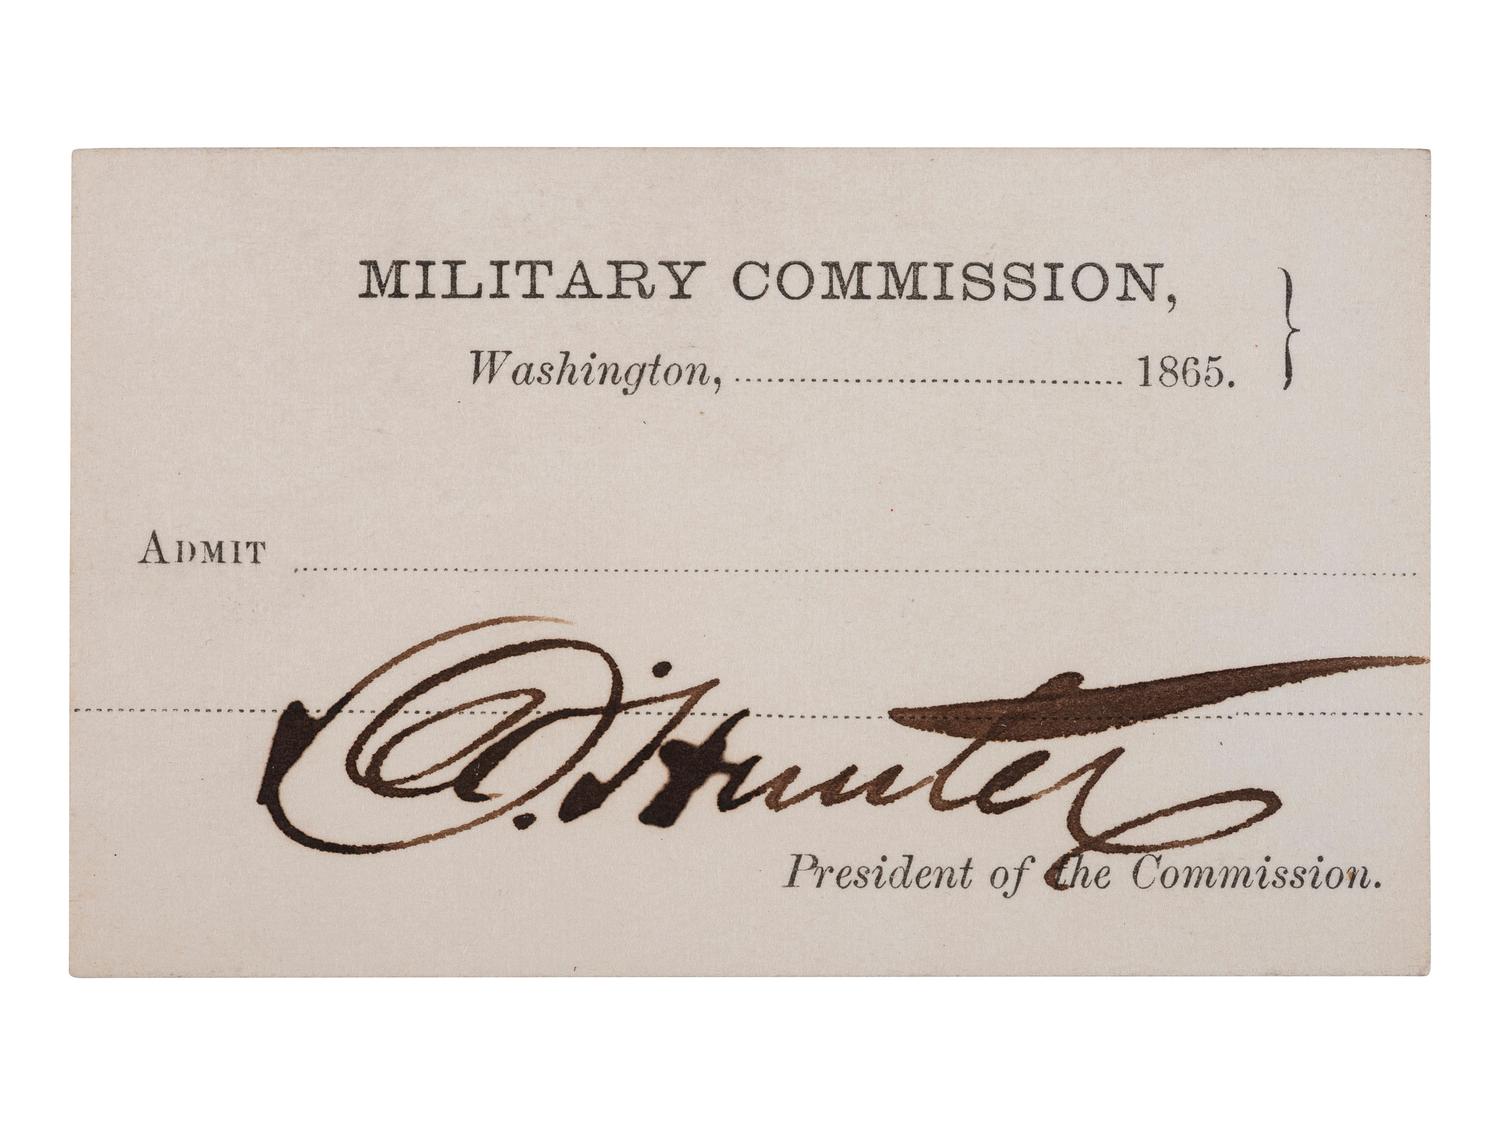 MILITARY COMMISSION,
Washington, .................... 1865.
ADMIT ....................
D. Hunter
President of the Commission.